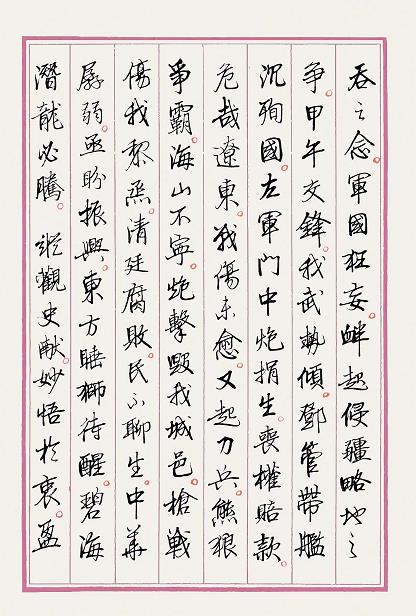 吞之念。軍國狂妄。衅起侵疆略地之
争。甲午交鋒。我武勢傾。鄧管帶艦
沉殉國。左軍門中炮捐生。喪權賠款。
危哉遼東。我傷未愈。又起刀兵。熊狼
爭霸。海山不寧。炮擊毀我城邑。槍戦
傷我黎烝。清廷腐敗。民不聊生。中華
孱弱。亟盼振興。東方睡獅待醒。碧海
潛龍必騰。縱觀史献。妙悟於衷。盈